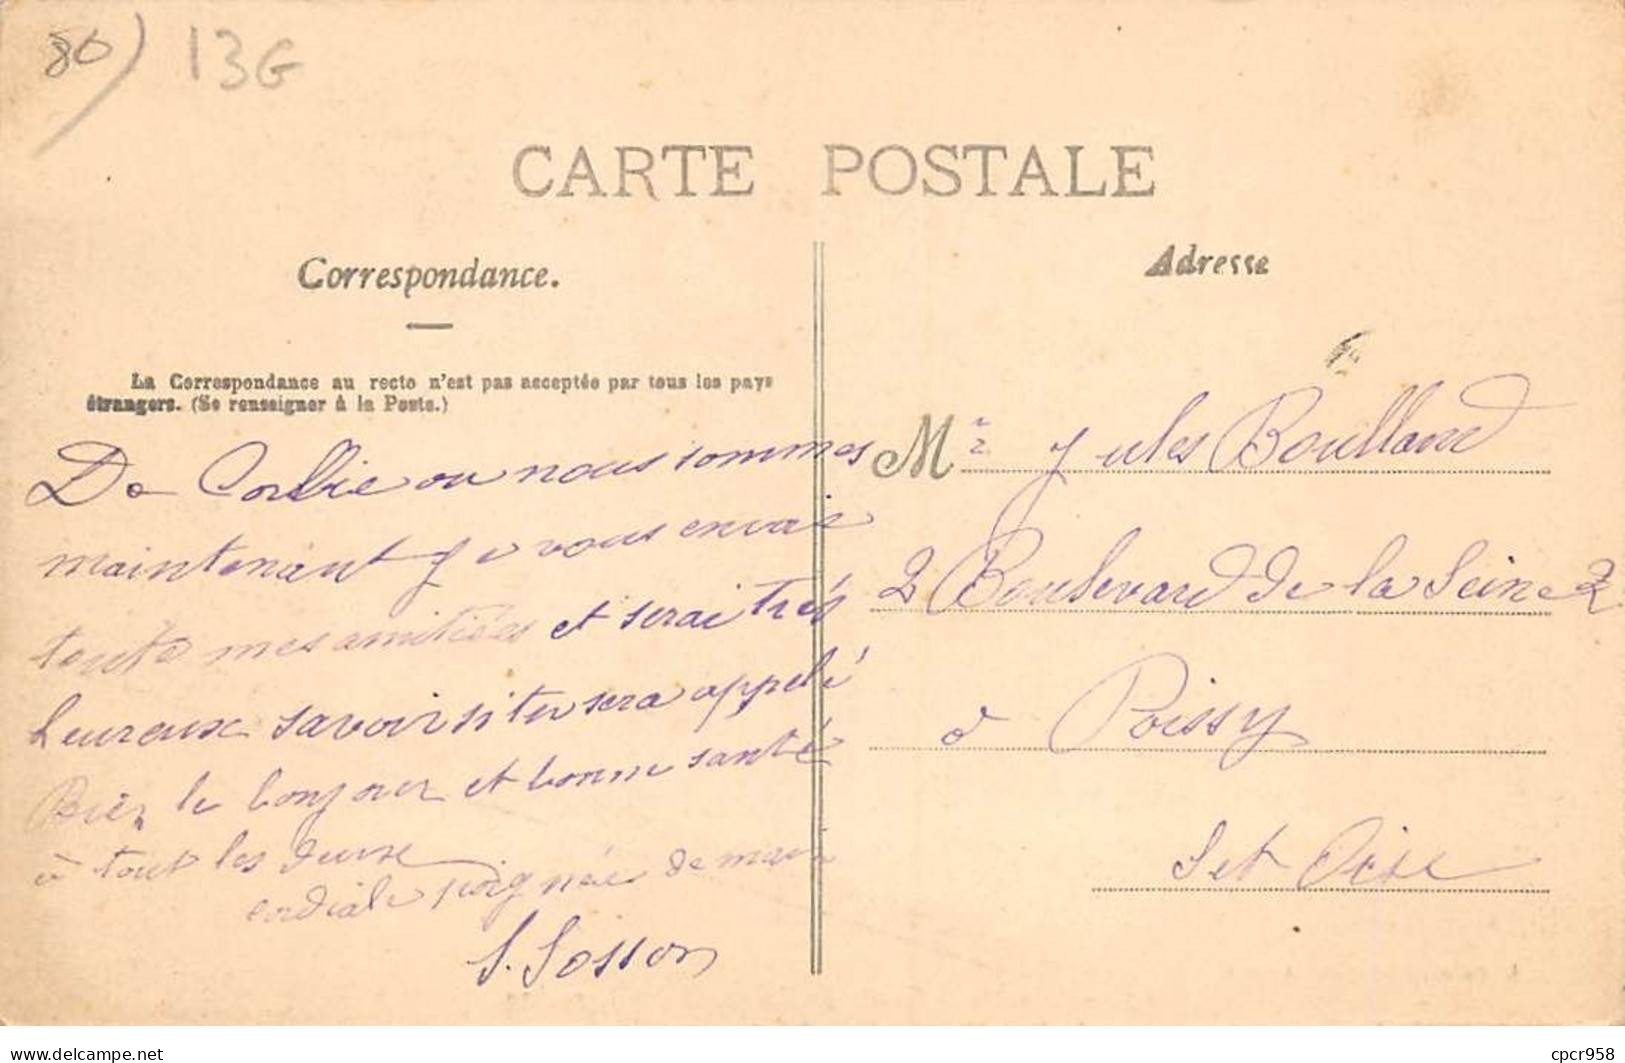 80) 13G
CARTE POSTALE
Correspondance.
La Correspondance au recto n'est pas acceptée par tous les pays
étrangers. (Se renseigner à la Poste.)
De Corbie ou nous sommes
maintenant je vous envoie
toute mes amitiées et serai très
heureux savoir si tu sera appelé
Bien le bonjour et bonne santé
à tout les deux
cordiale poignée de main
S. Sosson
Adresse
Mr Jules Boulland
2 Boulevard de la Seine 2
à Poissy
S et Oise
www.delcampe.net
cpcr958